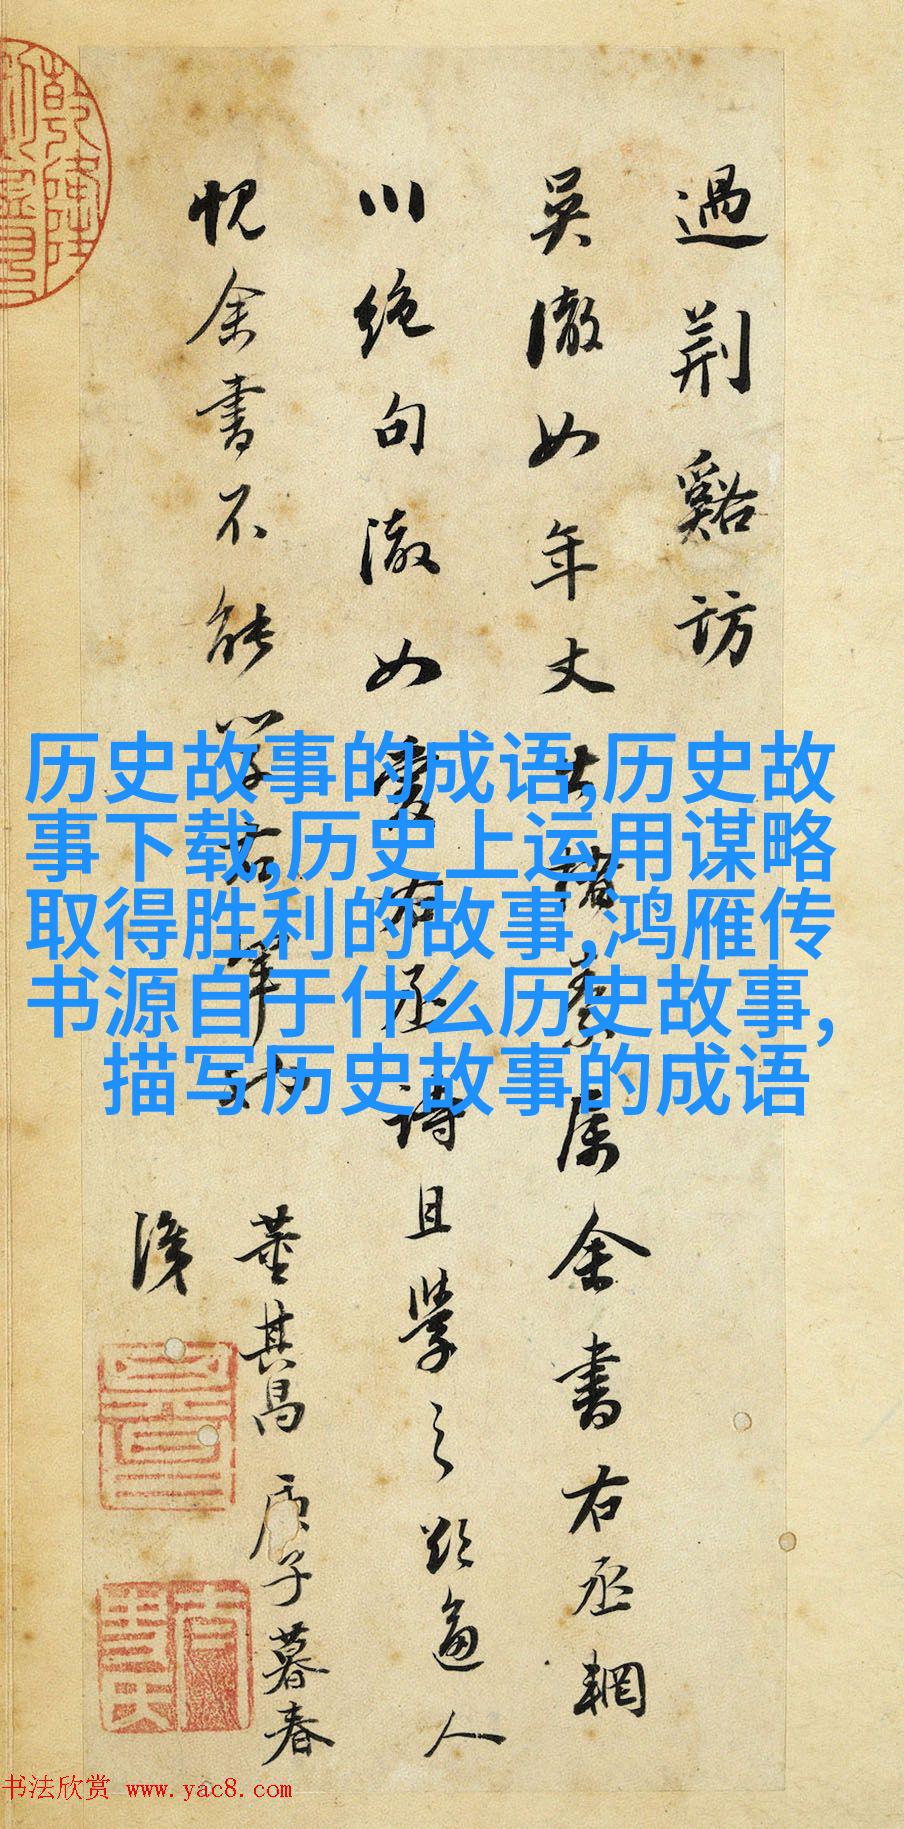 過荆谿訪
吴澈如年丈出諸素屬余書右丞輞
川絶句澈如愛右丞詩且學之欲逼人
愧余書不能學右軍如
董其昌庚子暮春
識
历史故事的成语,历史故
事下载,历史上运用谋略
取得胜利的故事,鸿雁传
书源自于什么历史故事,
描写历史故事的成语
书法欣赏 www.yac8.com